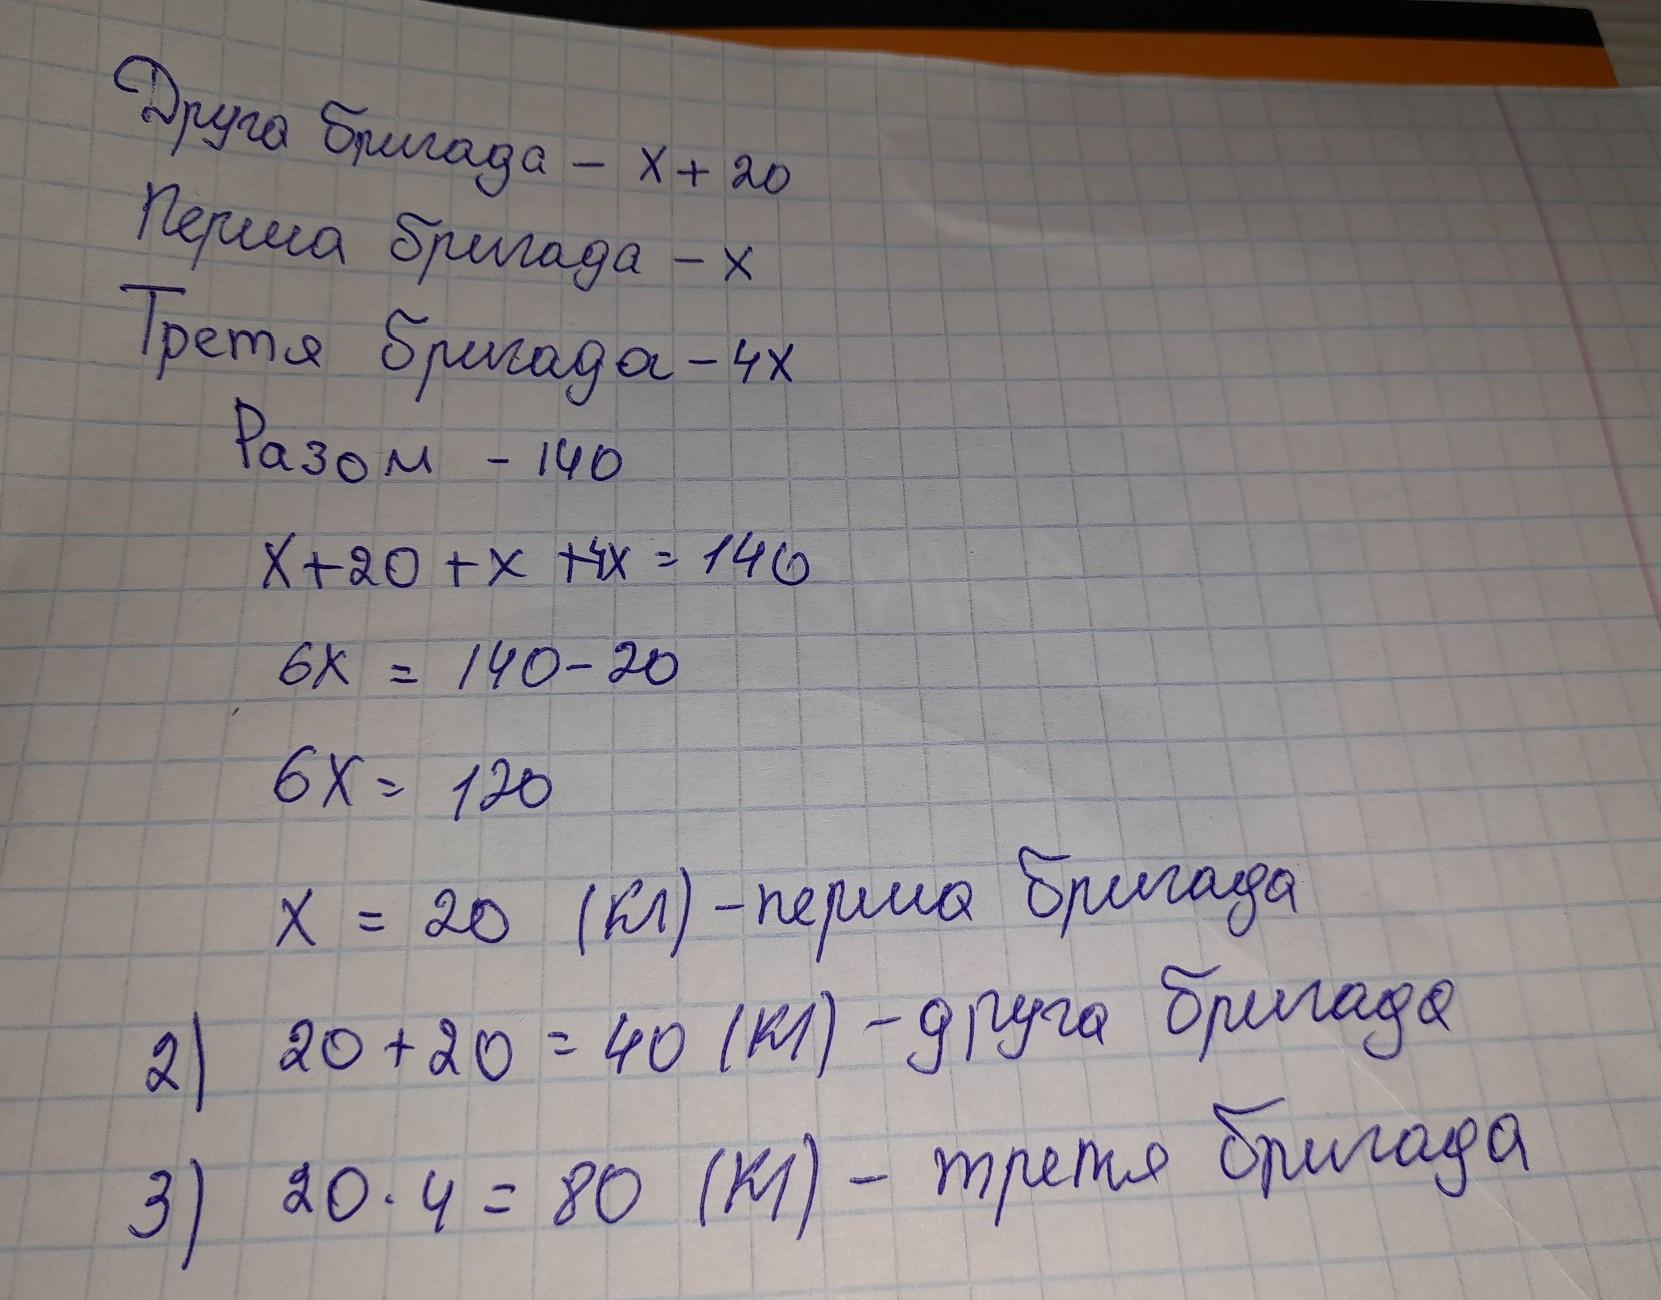 Друга бригада - х + 20
Перша бригада - х
Третя бригада - 4х
Разом - 140
х + 20 + х + 4х = 140
6х = 140 - 20
6х = 120
х = 20 (кл) - перша бригада
2) 20 + 20 = 40 (кл) - друга бригада
3) 20 · 4 = 80 (кл) - третя бригада